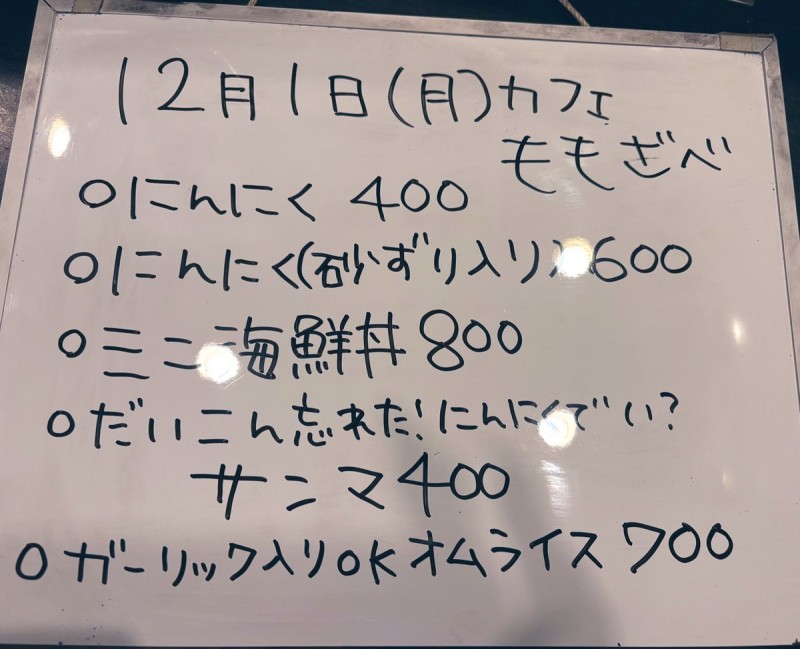 12月1日(月)カフェ
ももざべ
○にんにく 400
○にんにく(砂ずり入り)600
○ミニ海鮮丼 800
○だいこん忘れた!にんにくでい?
サンマ400
○ガーリック入りOKオムライス 700